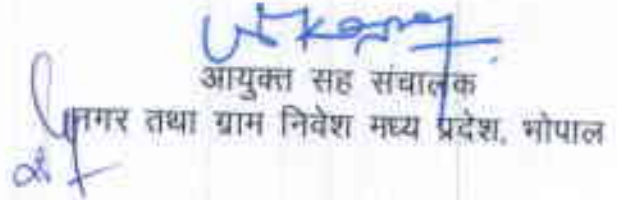 आयुक्त सह संचालक
नगर तथा ग्राम निवेश मध्य प्रदेश, भोपाल